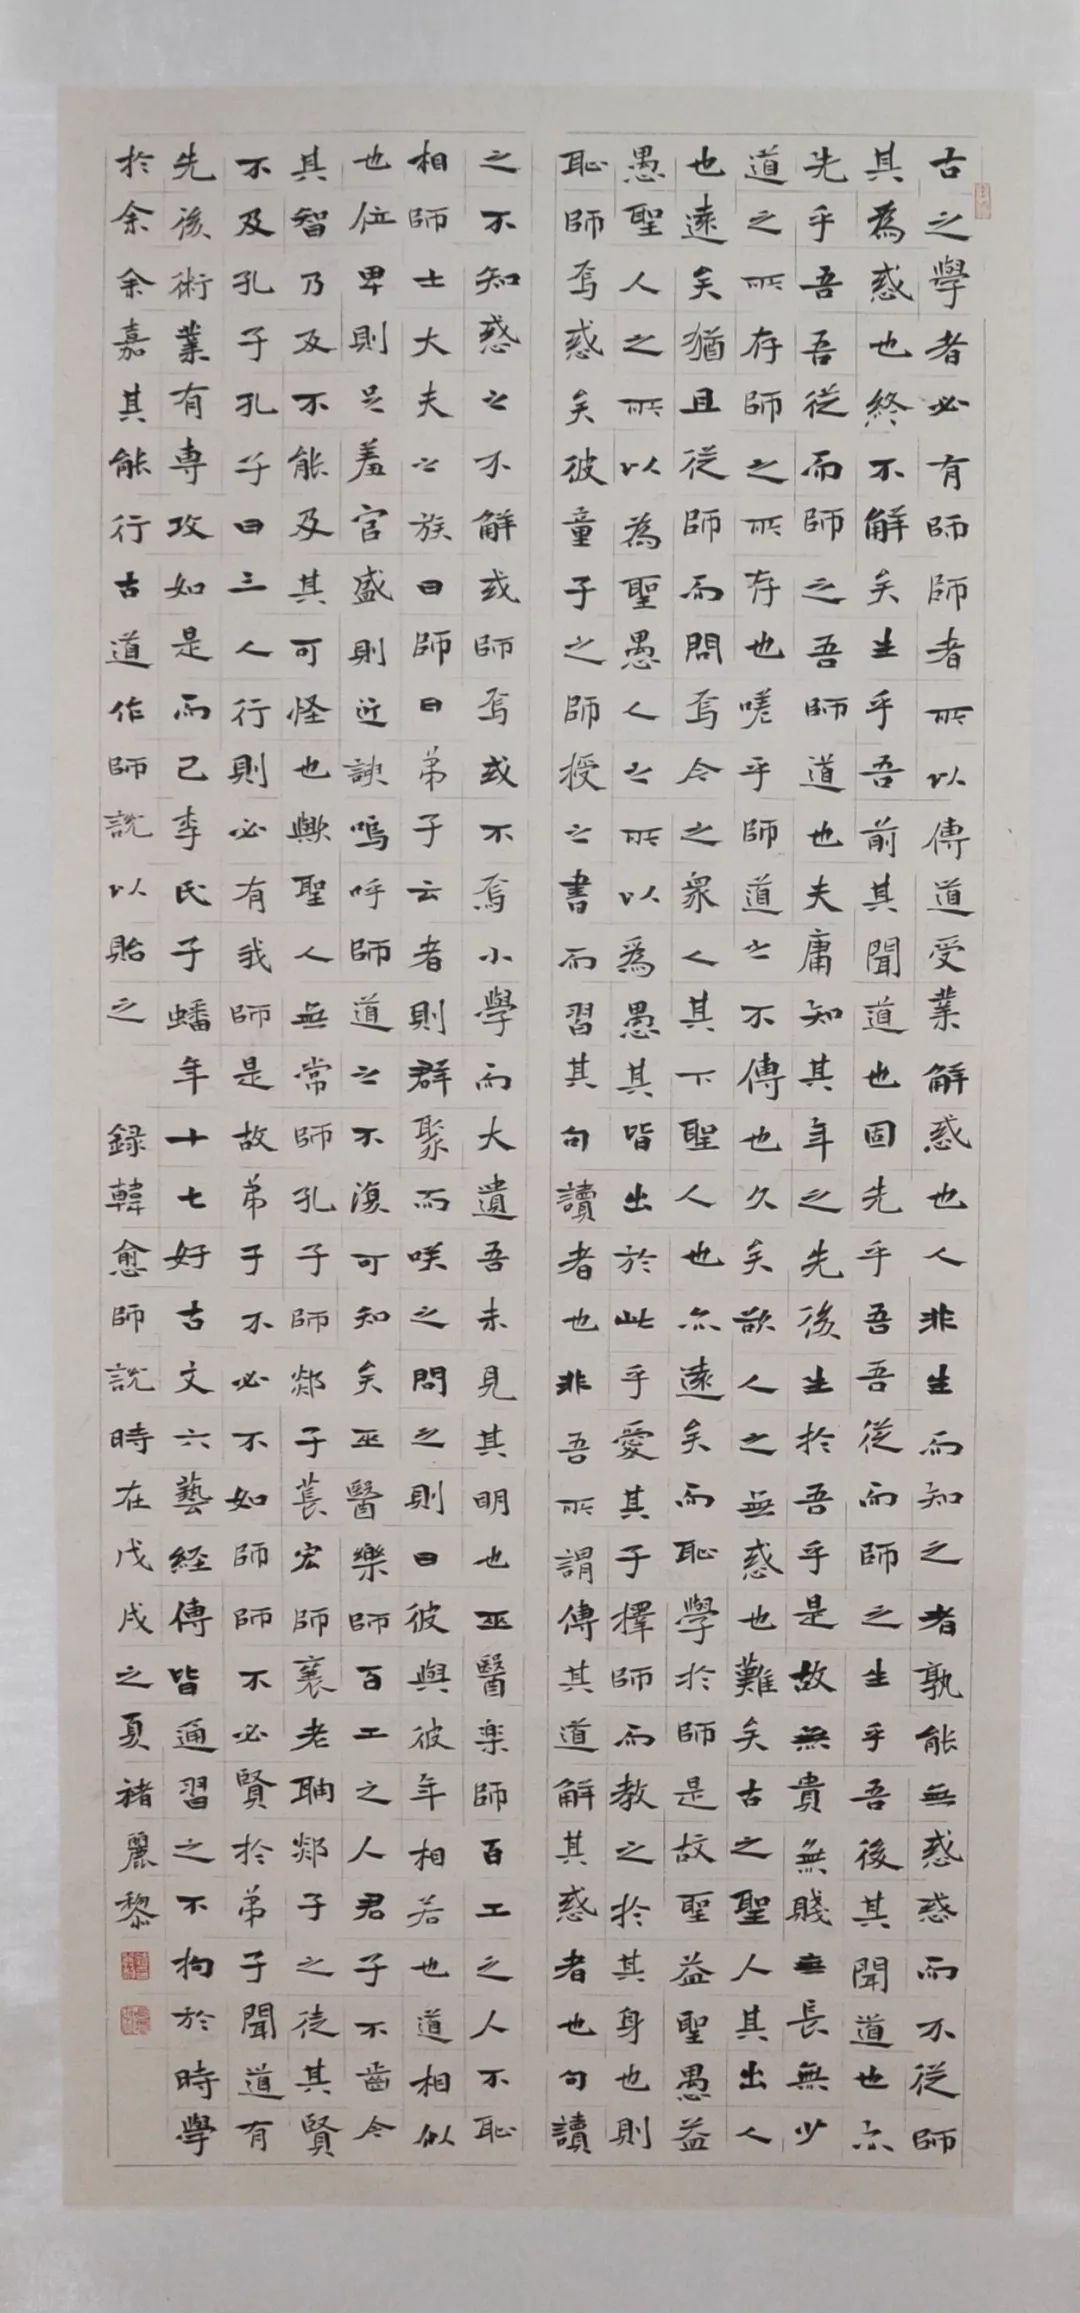 古之學者必有師師者所以傳道受業解惑也人非生而知之者孰能無惑惑而不從師
其為惑也終不解矣生乎吾前其聞道也固先乎吾吾從而師之生乎吾後其聞道也亦
先乎吾吾從而師之吾師道也夫庸知其年之先後生於吾乎是故無貴無賤無長無少
道之所存師之所存也嗟乎師道之不傳也久矣欲人之無惑也難矣古之聖人其出人
也遠矣猶且從師而問焉今之眾人其下聖人也亦遠矣而耻學於師是故聖益聖愚益
愚聖人之所以為聖愚人之所以為愚其皆出於此乎愛其子擇師而教之於其身也則
耻師焉惑矣彼童子之師授之書而習其句讀者也非吾所謂傳其道解其惑者也句讀
之不知惑之不解或師焉或不焉小學而大遺吾未見其明也巫醫楽師百工之人不耻
相師士大夫之族曰師曰弟子云者則群聚而咲之問之則曰彼與彼年相若也道相似
也位卑則足羞官盛則近諛嗚呼師道之不復可知矣巫醫樂師百工之人君子不齒今
其智乃及不能及其可怪也歟聖人無常師孔子師郯子萇宏師襄老聃郯子之徒其賢
不及孔子孔子曰三人行則必有我師是故弟子不必不如師師不必賢於弟子聞道有
先後術業有專攻如是而已李氏子蟠年十七好古文六藝経傳皆通習之不拘於時學
於余余嘉其能行古道作師說以貽之 録韓愈師說時在戊戌之夏褚麗黎